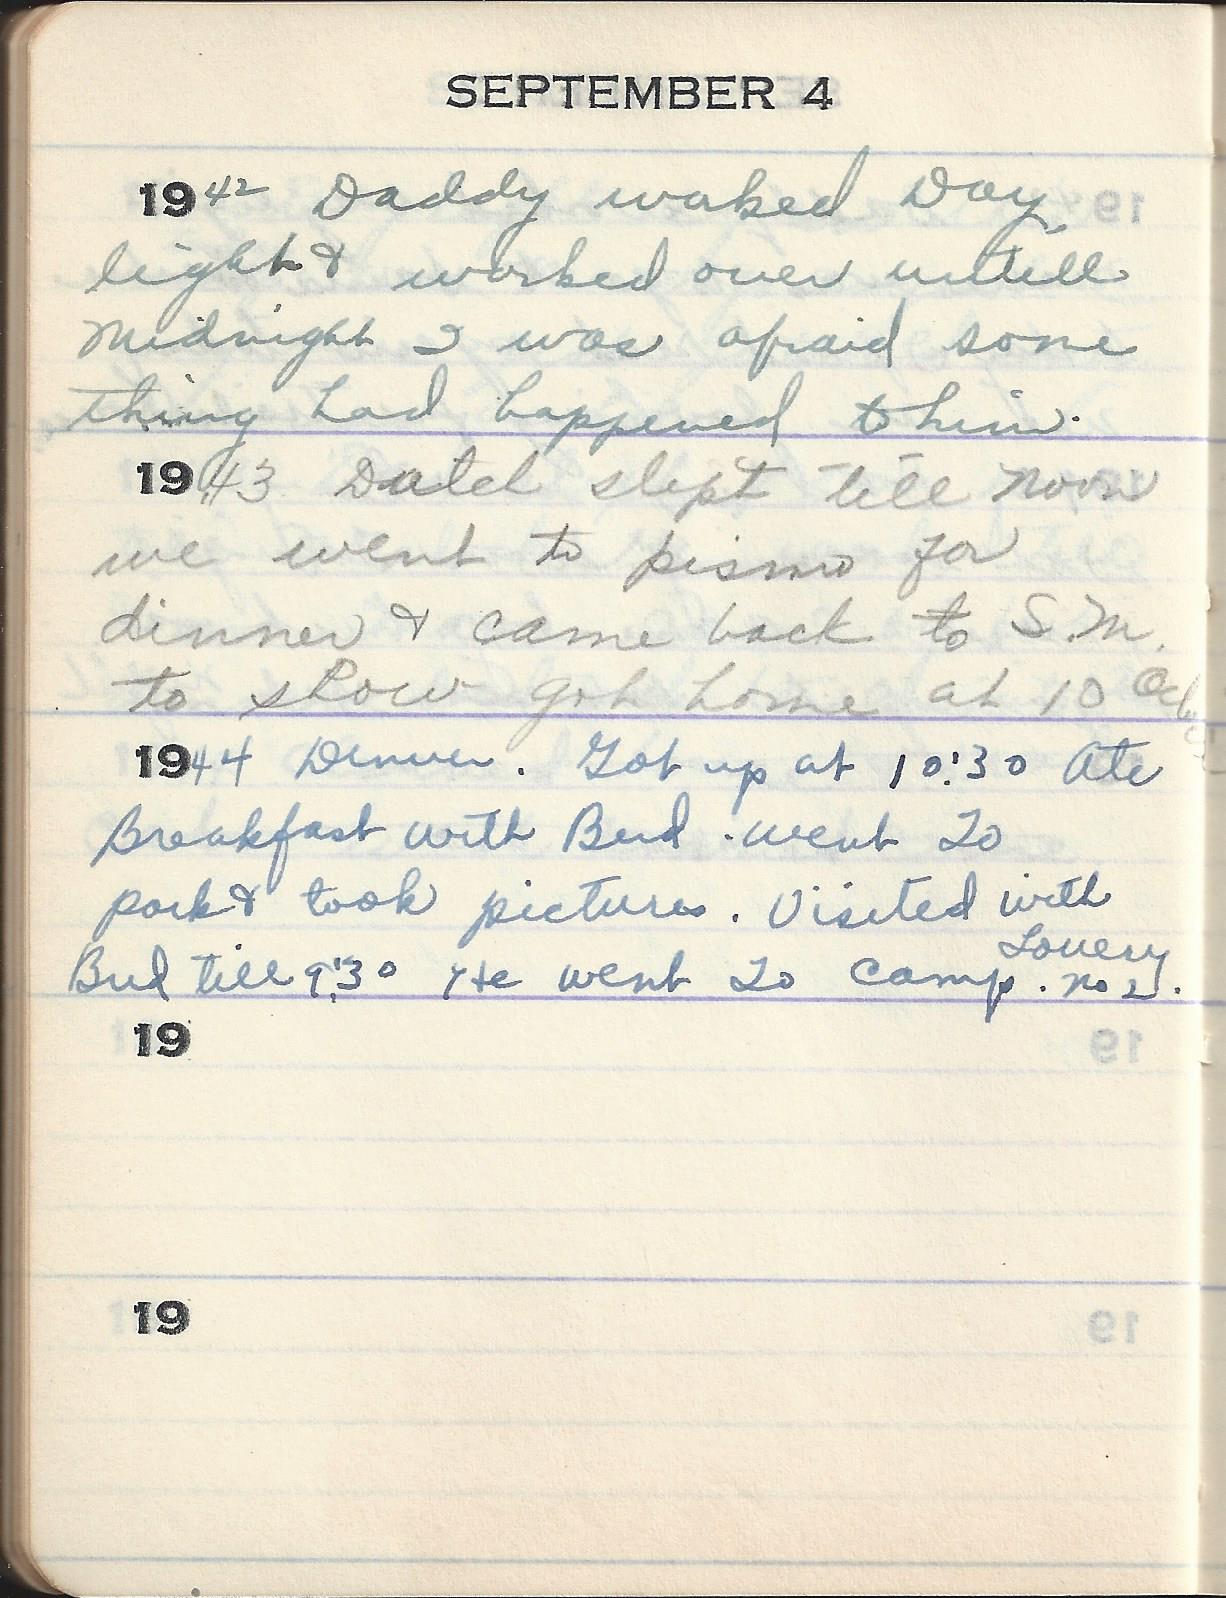 SEPTEMBER 4
1942 Daddy worked Day
light & worked over untill
Midnight I was afraid some
thing had happened to him.
1943 slept till Noon
we went to pismo for
dinner & came back to S.M.
to show got home at 10
1944 Denver. Got up at 10:30 Ate
Breakfast with Bud. went To
park & took pictures. Visited with
Bud till 9:30 He went To Camp. Lowery no 2.
19
19